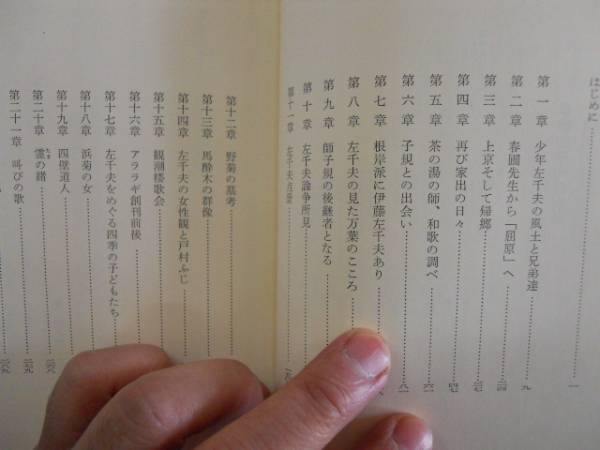 はじめに……一
第一章 少年左千夫の風土と兄弟達……九
第二章 春圃先生から「屈原」へ……
第三章 上京そして帰郷……
第四章 再び家出の日々……
第五章 茶の湯の師、和歌の調べ……六一
第六章 子規との出会い……八一
第七章 根岸派に伊藤左千夫あり……
第八章 左千夫の見た万葉のこころ……
第九章 師子規の後継者となる……
第十章 左千夫論争所見……
第十一章 左千夫
第十二章 野菊の墓考……
第十三章 馬酔木の群像……
第十四章 左千夫の女性観と戸村ふじ……
第十五章 観潮楼歌会……
第十六章 アララギ創刊前後……
第十七章 左千夫をめぐる四季の子どもたち……
第十八章 浜菊の女……
第十九章 四壁道人……
第二十章 霊の緒……
第二十一章 叫びの歌……